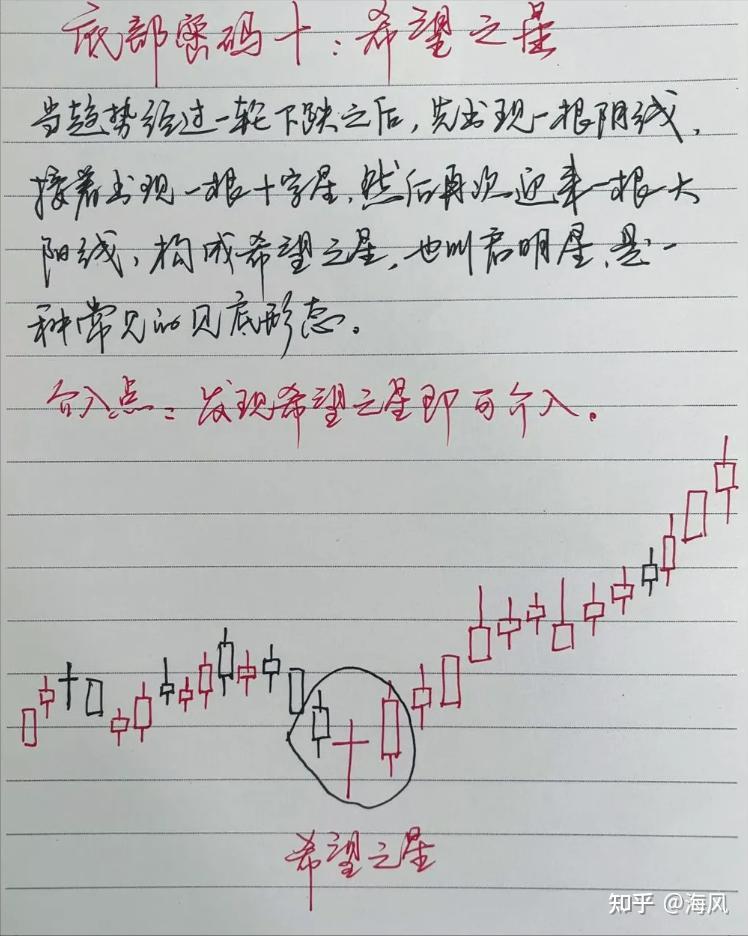 底部密码十：希望之星
当趋势经过一轮下跌之后，先出现一根阴线，
接着出现一根十字星，然后再次迎来一根大
阳线，构成希望之星，也叫启明星，是一
种常见的见底形态。
介入点：发现希望之星即可介入。
希望之星
知乎 @海风